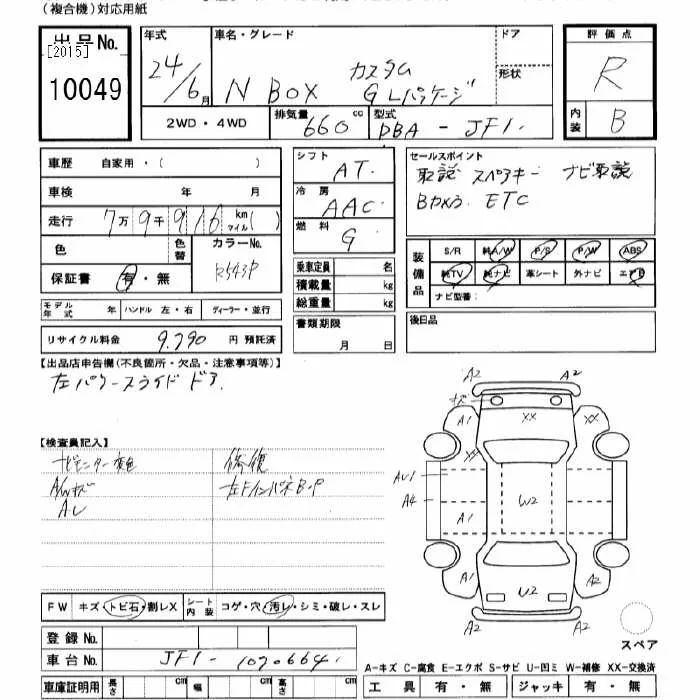 (複合機)対応用紙
出品No.
[2015]
10049
年式
24/6月
車名・グレード
N BOX カスタム
G Lパッケージ
ドア
形状
評価点
R
内装
B
2WD・4WD
排気量
660 cc
型式
DBA - JF1.
車歴 自家用・( )
車検 年 月
走行 7万9千916 km マイル( )
色
色替
カラーNo.
R543P
保証書 有・無
シフト
AT.
冷房
AAC
燃料
G
乗車定員 名
積載量 kg
総重量 kg
セールスポイント
取説 スペアキー ナビ取説
Bカメラ ETC
装備品
S/R 純A/W P/S P/W ABS
純TV 純ナビ 革シート 外ナビ エアB
ナビ型番:
モデル年式 年 ハンドル 左・右 ディーラー・並行
リサイクル料金 9.790 円 預託済
書類期限
月 日
後日品
【出品店申告欄(不良箇所・欠品・注意事項等)】
左パワースライドドア.
【検査員記入】
ナビモニター変色 修復
A/Wキズ 左FインパネB.P
AU
A2 A2
キズ
A1 XX XX
XX
AU1
A4
A1 W2
A1 U2 A2
A2 A2
スペア
FW キズ・トビ石・割レX
シート内装 コゲ・穴・汚レ・シミ・破レ・スレ
登録No.
車台No. JF1-1070664.
車庫証明用 長さ cm 幅 cm 高さ cm
A-キズ C-腐食 E-エクボ S-サビ U-凹ミ W-補修 XX-交換済
工具 有・無 ジャッキ 有・無